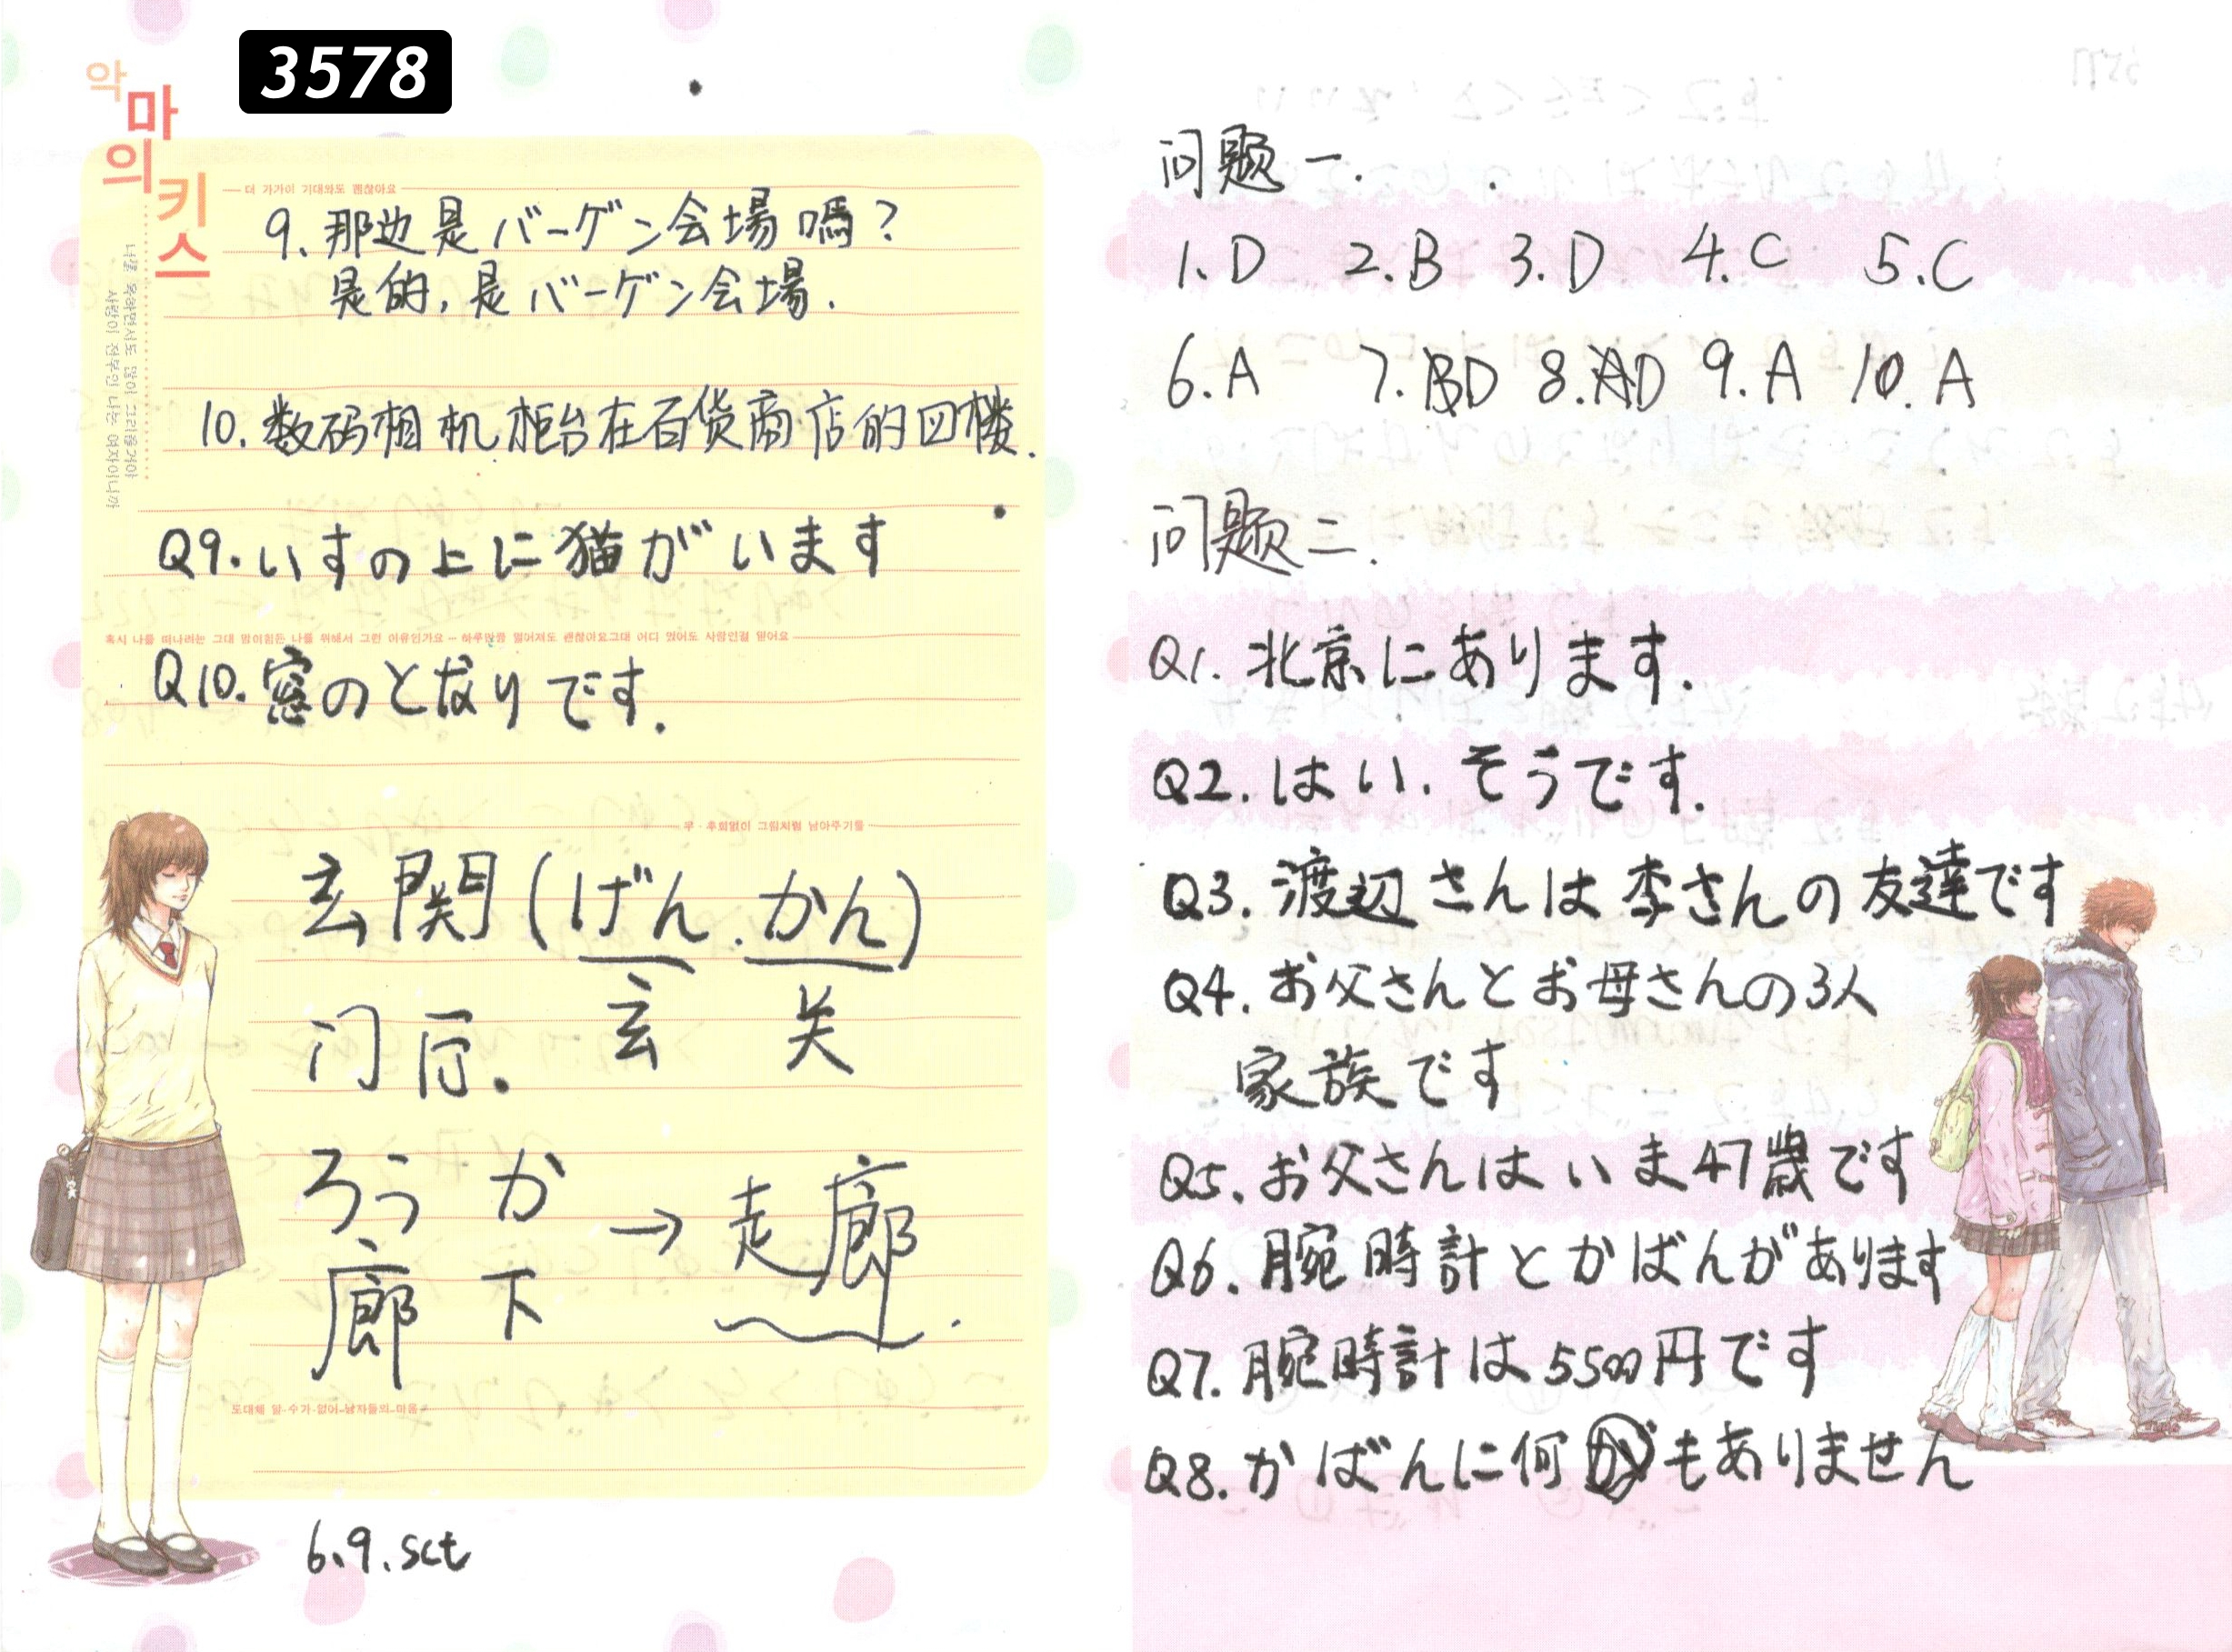 3578
악마의 키스
더 가까이 기대와도 괜찮아요
9. 那边是バーゲン会場嗎?
是的,是バーゲン会場.
10. 数码相机柜台在百货商店的四楼.
Q9. いすの上に猫がいます
혹시 나를 떠나려는 그대 맘이힘든 나를 위해서 그런 이유인가요 … 하루만큼 멀어져도 괜찮아요그대 어디 있어도 사랑인걸 믿어요
Q10. 窓のとなりです.
후회없이 그림처럼 남아주기를
玄関(げん.かん)
玄 关
门后.
ろう か
廊 下 → 走廊.
도대체 알 수가 없어 남자들의 마음
6.9.sct
问题一.
1.D 2.B 3.D 4.C 5.C
6.A 7.BD 8.AD 9.A 10.A
问题二.
Q1. 北京にあります.
Q2. はい. そうです.
Q3. 渡辺さんは李さんの友達です
Q4. お父さんとお母さんの3人
家族です
Q5. お父さんはいま47歳です
Q6. 腕時計とかばんがあります
Q7. 腕時計は5500円です
Q8. かばんに何もありません